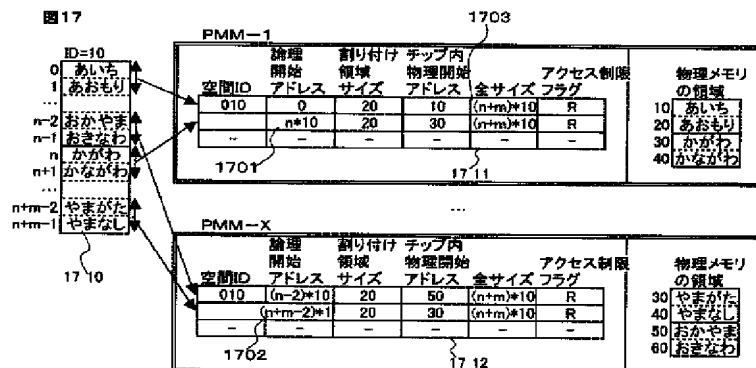 図17
1703
PMM-1
ID=10
0 あいち
1 あおもり
...
n-2 おかやま
n-1 おきなわ
n かがわ
n+1 かながわ
...
n+m-2 やまがた
n+m-1 やまなし
17 10
空間ID 論理開始アドレス 割り付け領域サイズ チップ内物理開始アドレス 全サイズ アクセス制限フラグ
010 0 20 10 (n+m)*10 R
n*10 20 30 (n+m)*10 R
- - - - - -
1701
17 11
物理メモリの領域
10 あいち
20 あおもり
30 かがわ
40 かながわ
...
PMM-X
空間ID 論理開始アドレス 割り付け領域サイズ チップ内物理開始アドレス 全サイズ アクセス制限フラグ
010 (n-2)*10 20 50 (n+m)*10 R
(n+m-2)*1 20 30 (n+m)*10 R
- - - - - -
1702
17 12
物理メモリの領域
30 やまがた
40 やまなし
50 おかやま
60 おきなわ